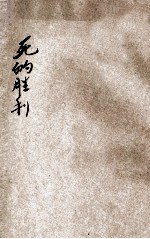 死的胜利